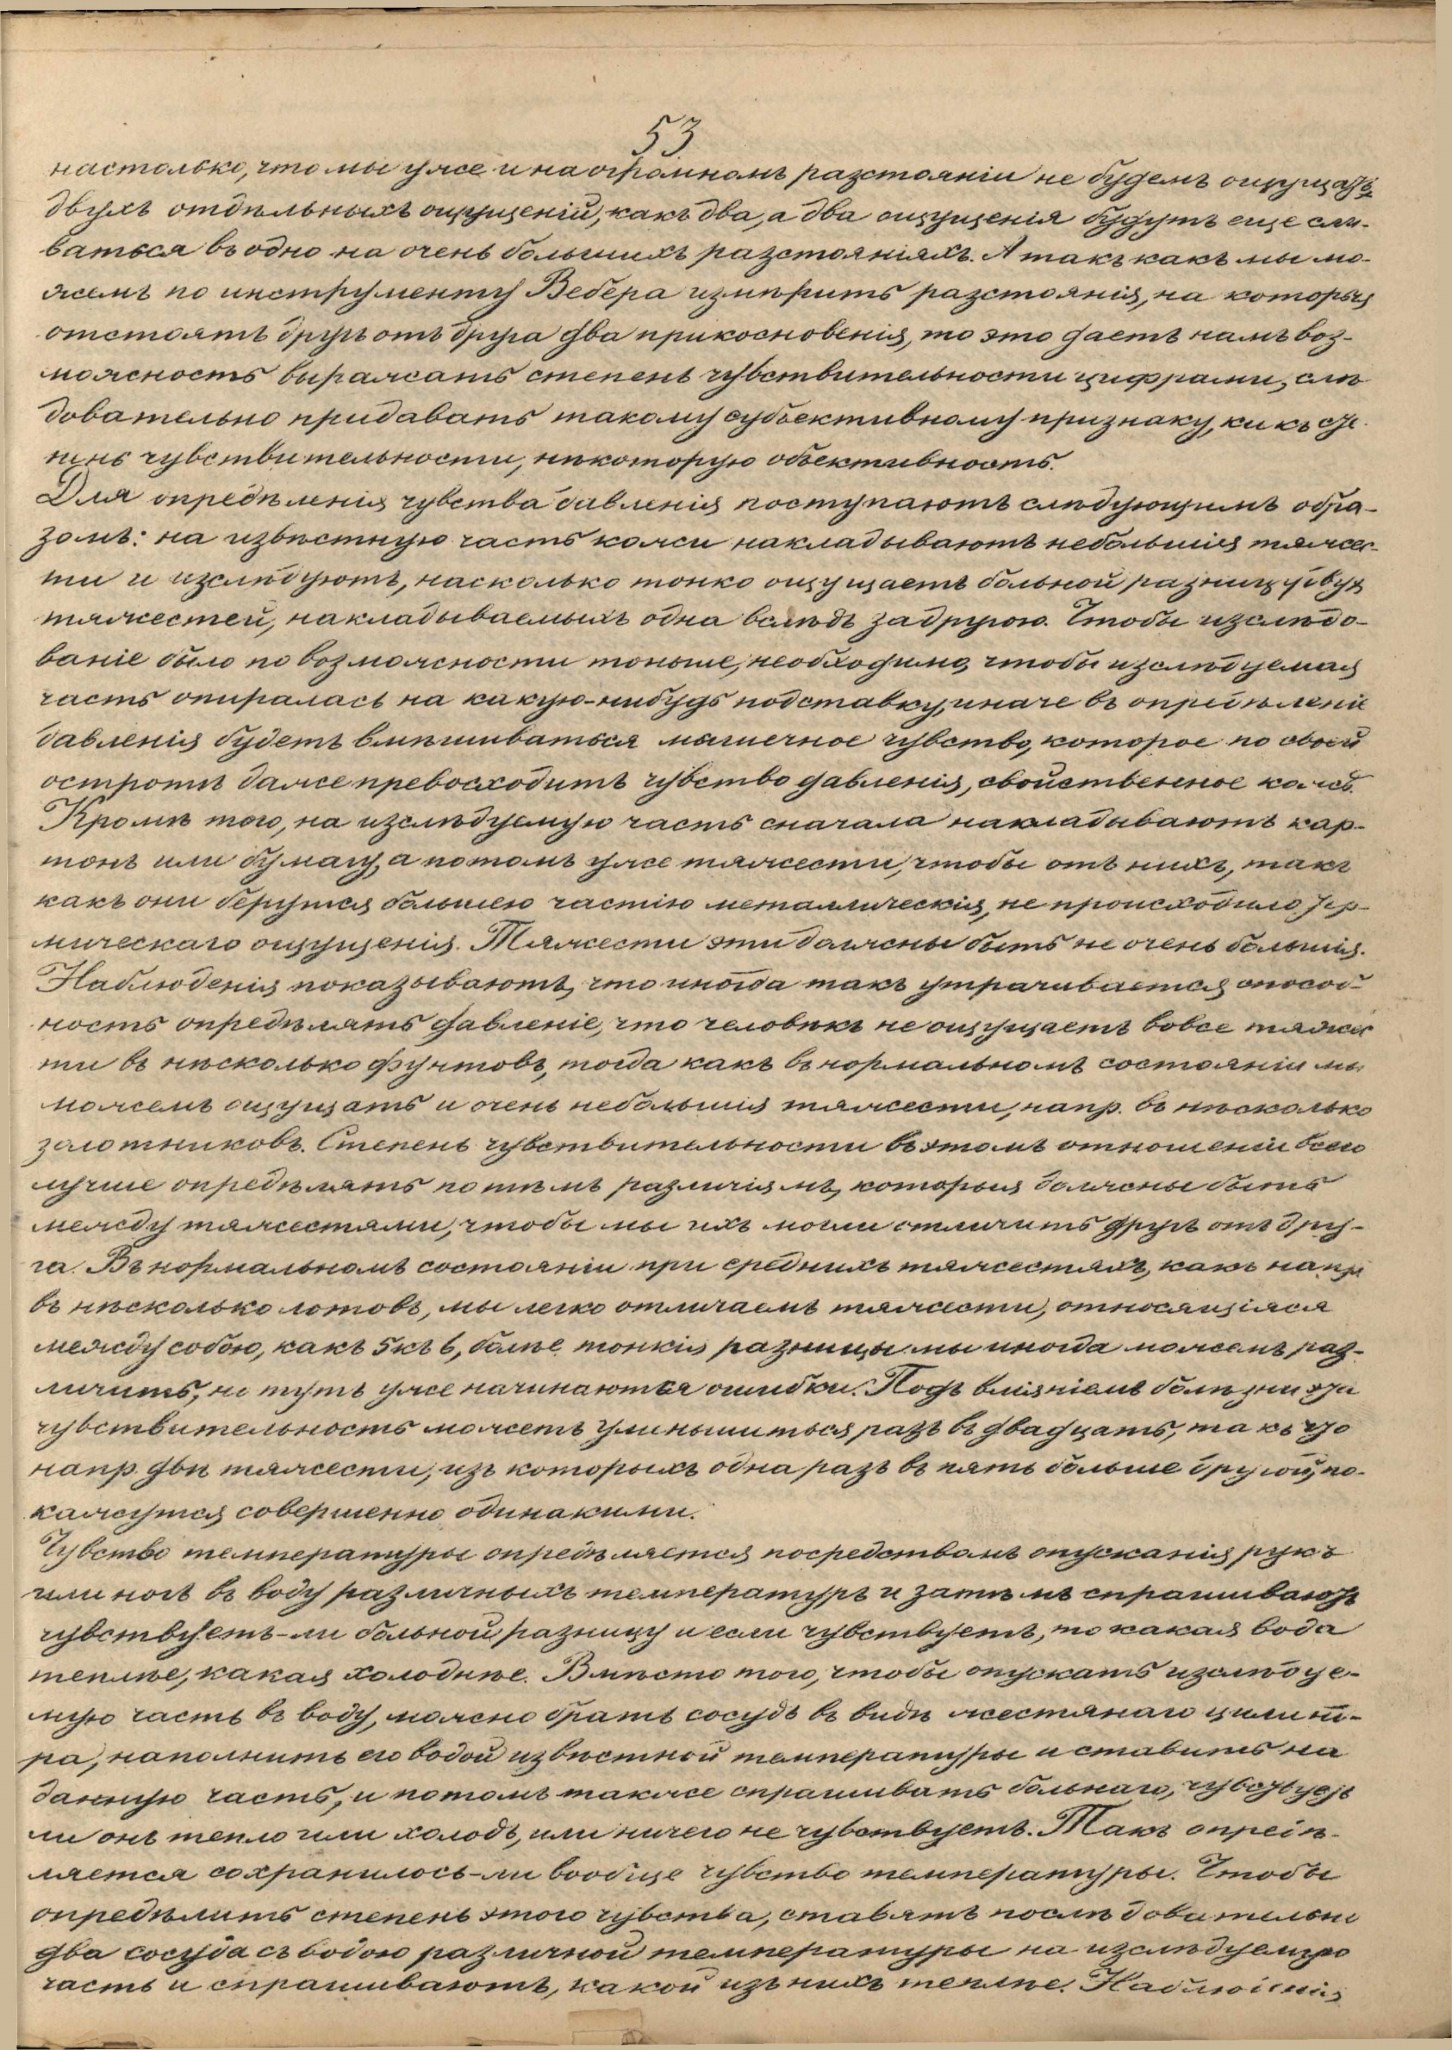 53
настолько, что мы уже и на огромномъ разстояніи не будемъ ощущать
двухъ отдѣльныхъ ощущеній, какъ два, а два ощущенія будутъ еще сли-
ваться въ одно на очень большихъ разстояніяхъ. А такъ какъ мы мо-
жемъ по инструменту Вебера измѣрить разстоянія, на которыя
отстоятъ другъ отъ друга два прикосновенія, то это даетъ намъ воз-
можность выражать степень чувствительности цифрами, слѣ
довательно придавать такому субъективному признаку, какъ сте
пень чувствительности, нѣкоторую объективность.
Для опредѣленія чувства давленія поступаютъ слѣдующимъ обра-
зомъ: на извѣстную часть кожи накладываютъ небольшія тяжес-
ти и изслѣдуютъ, насколько тонко ощущаетъ больной разницу двух
тяжестей, накладываемыхъ одна вслѣдъ за другою. Чтобы изслѣдо-
ваніе было по возможности тоньше, необходимо, чтобы изслѣдуемая
часть опиралась на какую-нибудь подставку, иначе въ опредѣленіе
давленія будетъ вмѣшиваться мышечное чувство, которое по своей
остротѣ даже превосходитъ чувство давленія, свойственное кожѣ.
Кромѣ того, на изслѣдуемую часть сначала накладываютъ кар-
тонъ или бумагу, а потомъ уже тяжести, чтобы отъ нихъ, такъ
какъ они берутся большею частію металлическія, не происходило тер-
мическаго ощущенія. Тяжести эти должны быть не очень большія.
Наблюденія показываютъ, что иногда такъ утрачивается способ-
ность опредѣлять давленіе, что человѣкъ не ощущаетъ вовсе тяжес
ти въ нѣсколько фунтовъ, тогда какъ въ нормальномъ состояніи мы
можемъ ощущать и очень небольшія тяжести, напр. въ нѣсколько
золотниковъ. Степень чувствительности въ этомъ отношеніи всего
лучше опредѣлять по тѣмъ различіямъ, которыя должны быть
между тяжестями, чтобы мы ихъ могли отличить другъ отъ дру-
га. Въ нормальномъ состояніи при среднихъ тяжестяхъ, какъ напр.
въ нѣсколько лотовъ, мы легко отличаемъ тяжести, относящіяся
между собою, какъ 5 къ 6, болѣе тонкія разницы мы иногда можемъ раз-
личить, но тутъ уже начинаются ошибки. Подъ вліяніемъ болѣзни эта
чувствительность можетъ уменьшиться разъ въ двадцать, такъ что
напр. двѣ тяжести, изъ которыхъ одна разъ въ пять больше другой, по-
кажутся совершенно одинакими.
Чувство температуры опредѣляется посредствомъ опусканія рукъ
или ногъ въ воду различныхъ температуръ и затѣмъ спрашиваютъ
чувствуетъ-ли больной разницу и если чувствуетъ, то какая вода
теплѣе, какая холоднѣе. Вмѣсто того, чтобы опускать изслѣдуе-
мую часть въ воду, можно брать сосудъ въ видѣ жестянаго цилинд-
ра, наполнить его водой извѣстной температуры и ставить на
данную часть, и потомъ также спрашивать больнаго, чувствуетъ
ли онъ тепло или холодъ, или ничего не чувствуетъ. Такъ опредѣ-
ляется сохранилось-ли вообще чувство температуры. Чтобы
опредѣлить степень этого чувства, ставятъ послѣдовательно
два сосуда съ водою различной температуры на изслѣдуемую
часть и спрашиваютъ, какой изъ нихъ теплѣе. Наблюденія